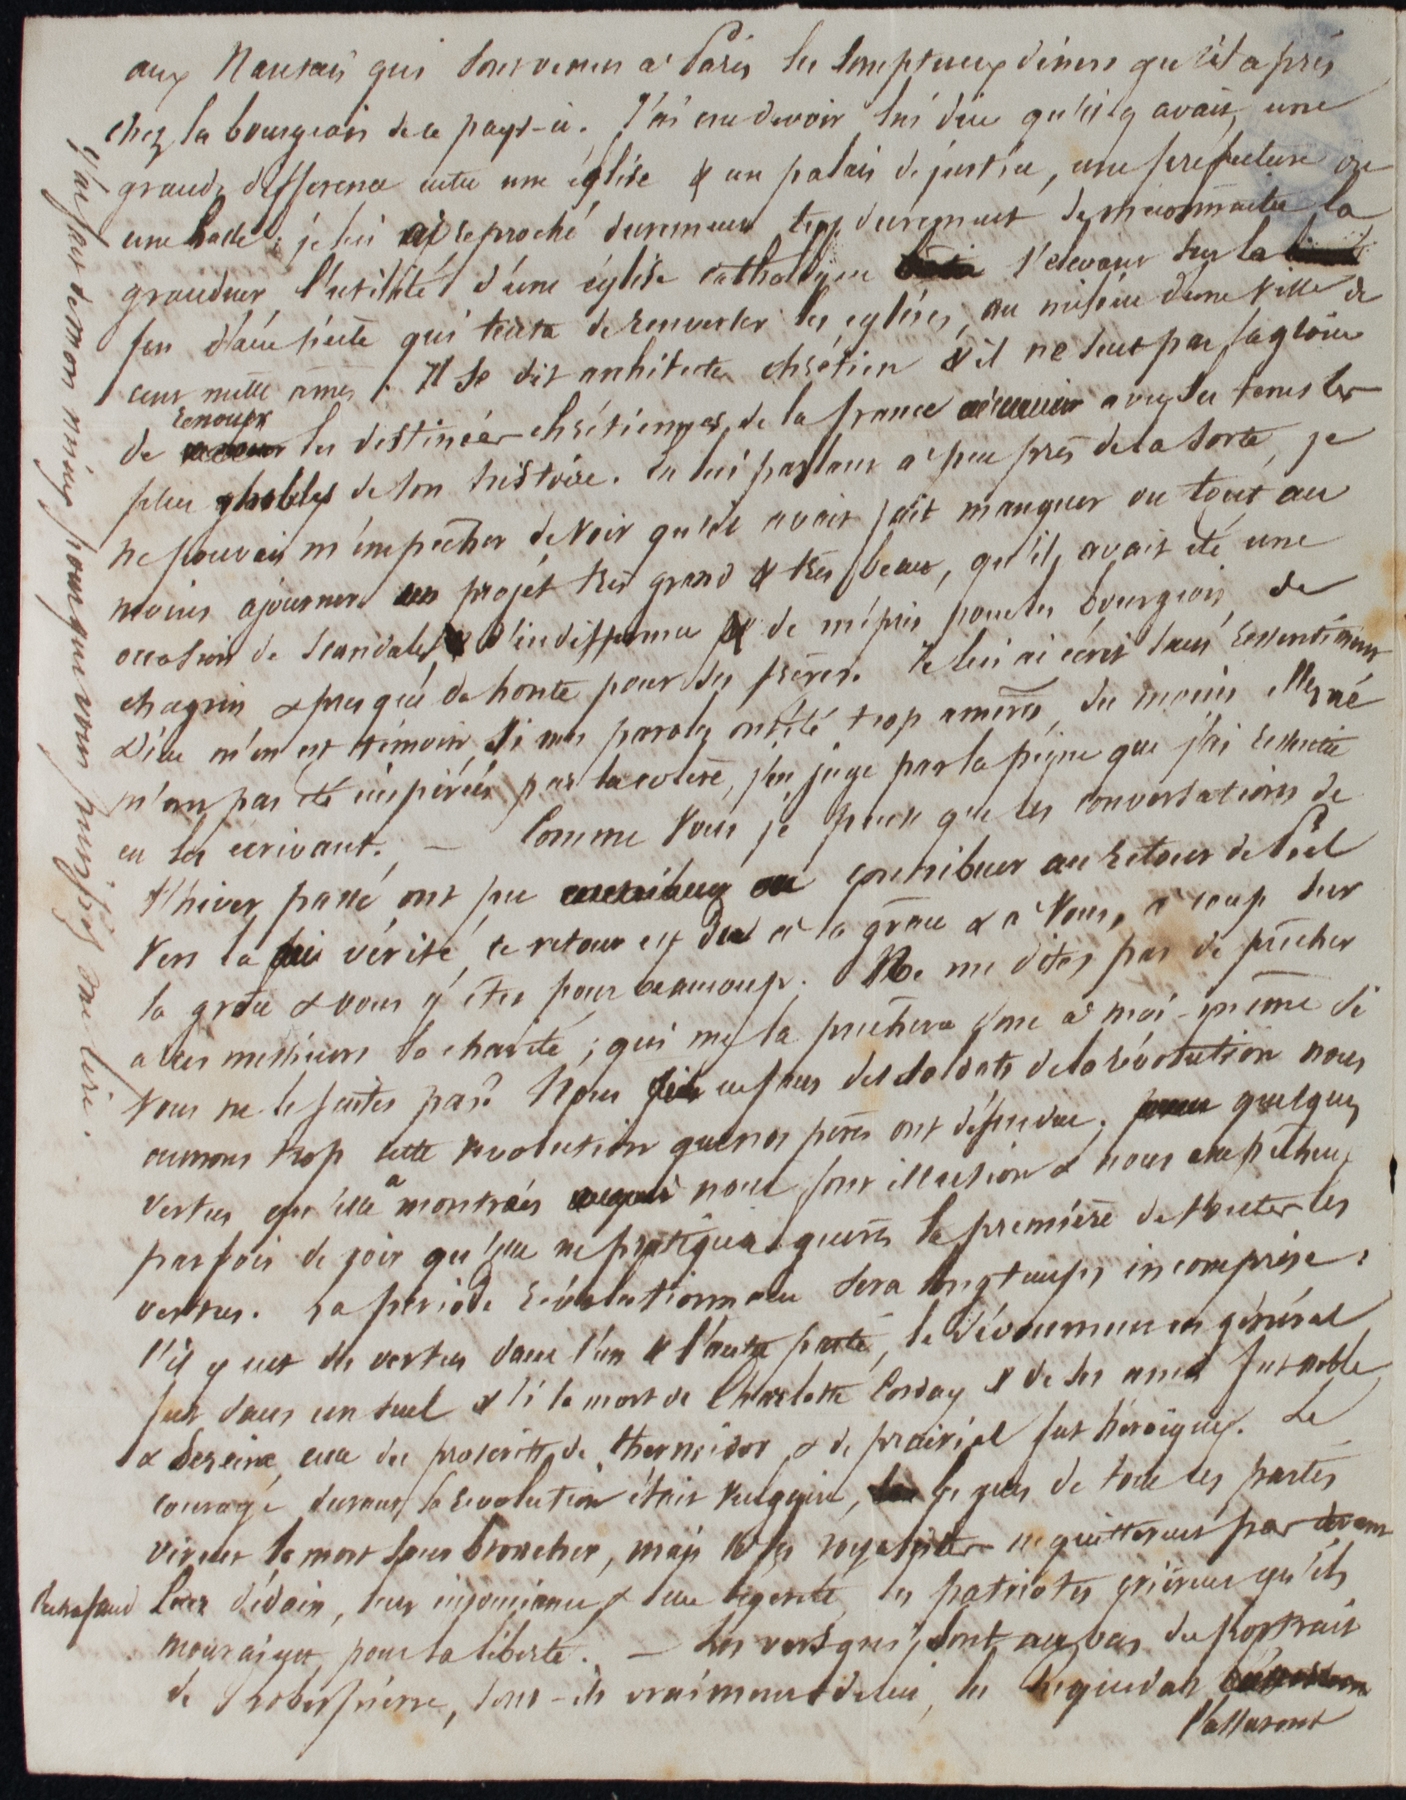 aux Nantais qui sont venus à Paris les somptueux dîners qu'il a pris
chez la bourgeois de ce pays-ci. J'ai cru devoir lui dire qu'il y avait une
grande différence entre une église & un palais de justice, une préfecture ou
une halle : je lui ai reproché durement trop durement de méconnaitre la
grandeur l'utilité d'une église catholique s'élevant sur la
fin d'un siècle qui tenta de renverser les églises, au milieu d'une ville de
cent mille âmes. Il se dit architecte chrétien & il ne sent pas la gloire
de renouer les destinées chrétiennes de la france avec les tems les
plus nobles de son histoire. En lui parlant à peu près de la sorte, je
ne pouvais m'empêcher de voir qu'il avait fait manquer ou tout au
moins ajourner un projet très grand & très beau, qu'il avait été une
occasion de scandale & d'indifférence & de mépris pour les bourgeois, de
chagrin & presque de honte pour ses frères. Je lui ai écrit sans ressentiment
Dieu m'en est témoin, si mes paroles ont été trop amères, du moins elles ne
m'ont pas été inspirées par la colère, j'en juge par la peine que j'ai ressentie
en les écrivant. — Comme vous je pense que les conversations de
l'hiver passé ont pu contribuer au retour de Piel
vers la vérité, ce retour est dû à la grâce & à vous, à coup sur
la grâce & vous y êtes pour beaucoup. Ne me dites pas de prêcher
à ces messieurs la charité ; qui me la prêchera donc à moi-même si
vous ne le faites pas ? Nous enfans des soldats de la révolution nous
aimons trop cette révolution que nos pères ont défendue. quelques
vertus qu'elle a montrées nous font illusion & nous empêchent
parfois de voir qu'elle ne pratiqua guères la première de toutes les
vertus. La période révolutionnaire sera longtemps incomprise :
s'il y eut des vertus dans l'un & l'autre parti, le dévoument en général
fut dans un seul & si la mort de Charlotte Corday & de ses amis fut noble
& sereine, celle des proscrits de thermidor & de prairial fut héroique. Le
courage durant la révolution était vulgaire, les gens de tous les partis
virent la mort sans broncher, mais les royalistes ne quitterent pas devant
l'échafaud leur dédain, leur insouciance & leur légereté, les patriotes crièrent qu'ils
mouraient pour la liberté. — Les vers qui sont au bas du portrait
de Robespierre, sont-ils vraiment de lui, les
l'assurent
J'ai fait de mon mieux pour que vous puissiez me lire.